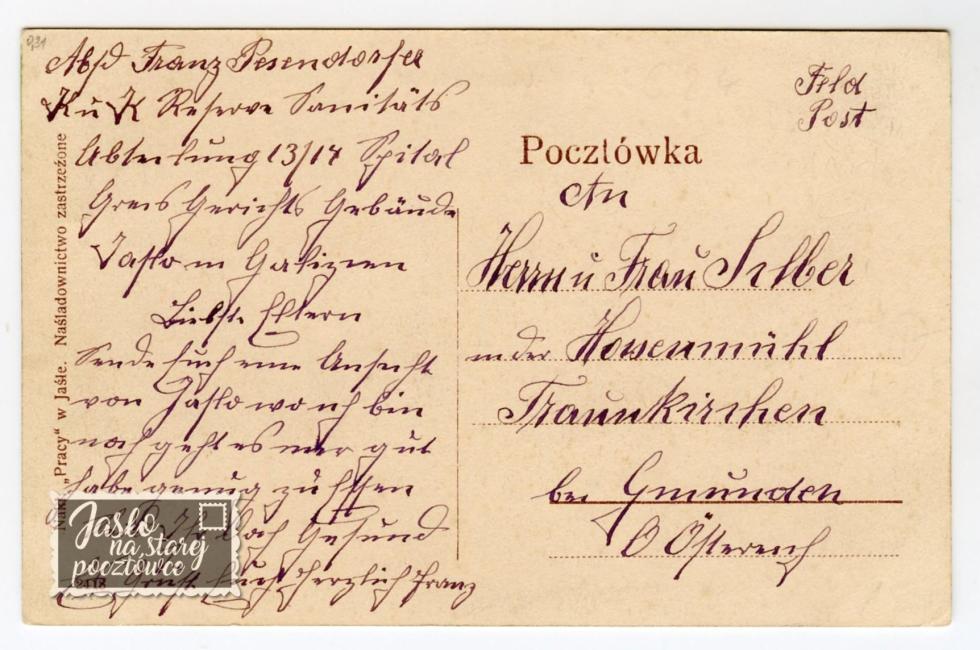 931
Abs/ Franz Pesendorfer
K u K Reserve Sanitäts
Abteilung 13/14 Spital
Greis Gerichts Gebäude
Jaslo in Galizien
Liebste Eltern
Sende Euch eine Ansicht
von Jaslo wo ich bin
noch geht es mir gut
habe genug zu Essen
Ihr doch Gesund
Euch herzlich Franz
Feld
Post
Pocztówka
An
Herrn u Frau Silber
in der
Traunkirchen
bei Gmunden
O Östereich
„Pracy" w Jaśle. Naśladownictwo zastrzeżone
Jasło
na starej
pocztówce